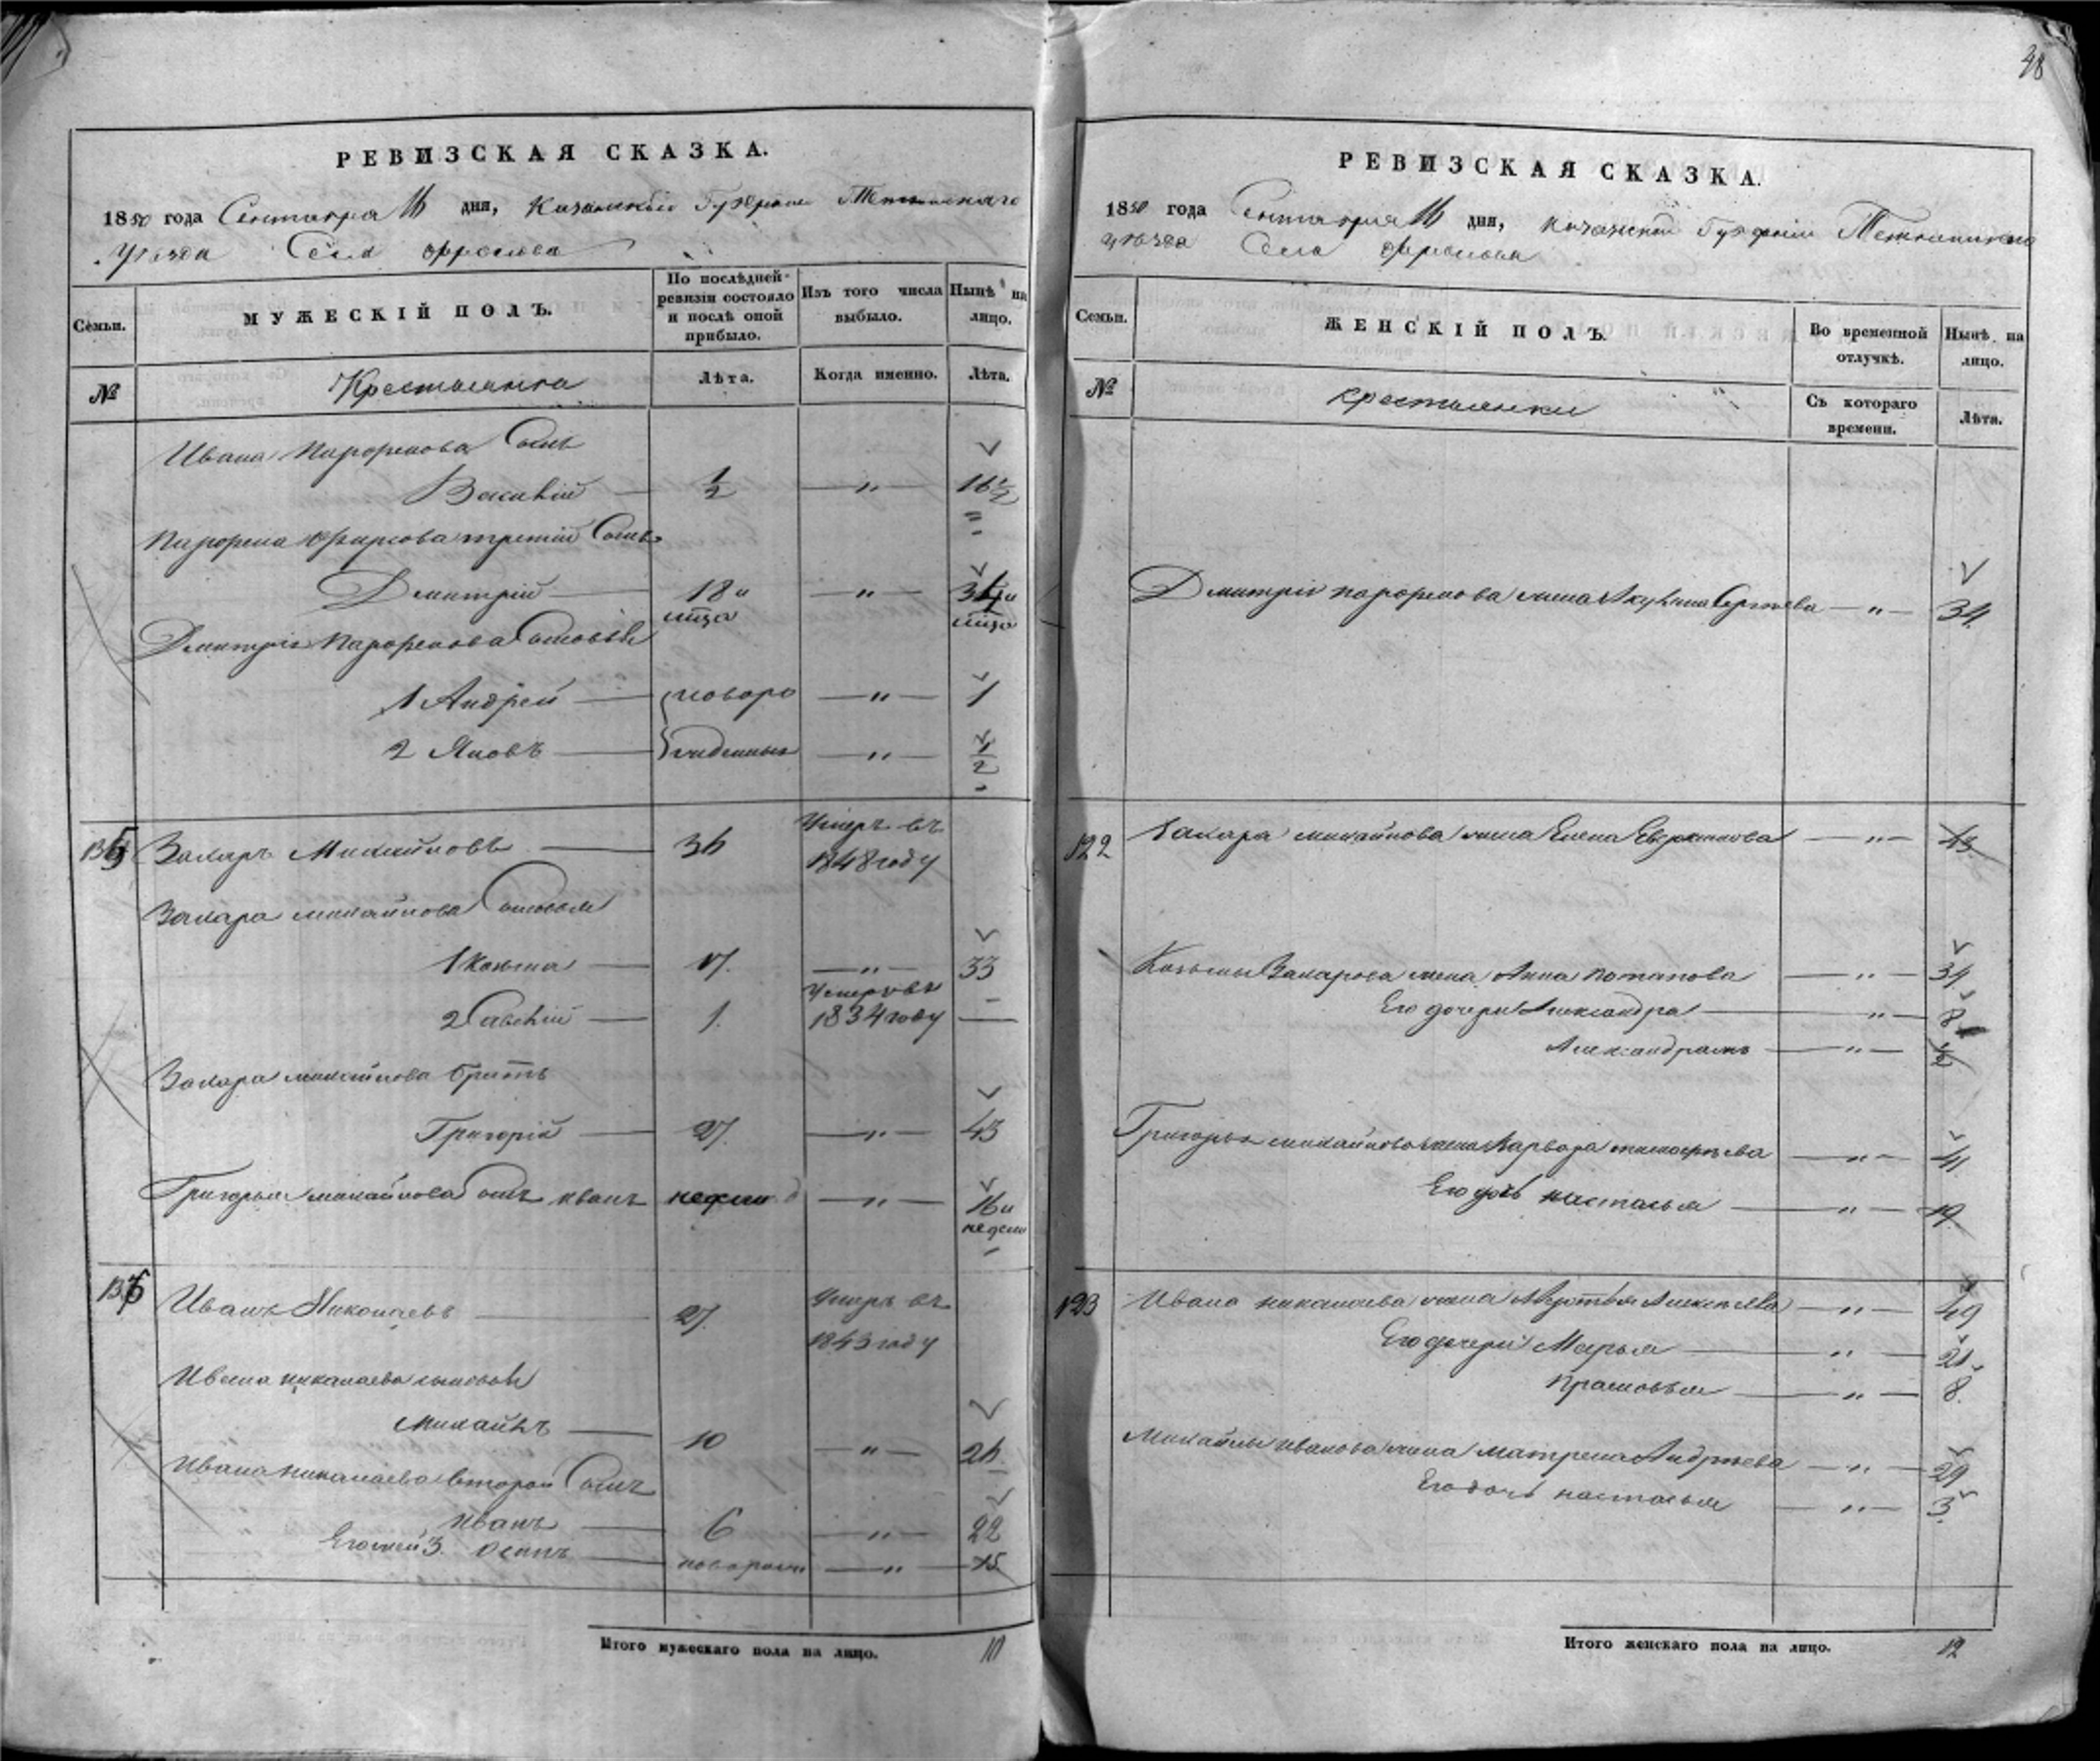 48
РЕВИЗСКАЯ СКАЗКА.
1850 года Сентября 16 дня, Казанской Губернии Тетюшскаго
Уѣзда Села
Семьи.
МУЖЕСКІЙ ПОЛЪ.
По послѣдней
ревизіи состояло
и послѣ оной
прибыло.
Изъ того числа
выбыло.
Нынѣ на
лицо.
№
Крестьяне
Лѣта.
Когда именно.
Лѣта.
Ивана Парфенова Сынъ
Василій 1/2 " 16 1/2
Парфена Фирсова третій Сынъ
Дмитрій 18 " 34
Дмитрія Парфенова Сыновья
1 Андрей новоро " 1
2 Яковъ жденные " 1/2
135 Захаръ Михайловъ 36 Умеръ въ
1848 году
Захара Михайлова Сыновья
1 Козьма 17. " 33
2 Савелій 1. Умеръ въ
1834 году —
Захара Михайлова братъ
Григорій 27. " 43
Григорья Михайлова Сынъ Иванъ недели " 16 и
недели
136 Иванъ Николаевъ 27. Умеръ въ
1843 году
Ивана Николаева сыновья
Михайлъ 10 " 26
Ивана Николаева второй Сынъ
Иванъ 6 " 22
3. Осипъ новорож " 15
Итого мужескаго пола на лицо.
РЕВИЗСКАЯ СКАЗКА.
1850 года Сентября 16 дня, Казанской Губерніи Тетюшскаго
уѣзда Села
Семьи.
ЖЕНСКІЙ ПОЛЪ.
Во временной
отлучкѣ.
Нынѣ на
лицо.
№
крестьянки
Съ котораго
времени.
Лѣта.
Дмитрія Парфенова жена Акулина Сергѣева " 34.
122 Захара Михайлова жена Елена " 43
Козьмы Захарова жена Анна Потапова " 34
Его дочери Александра " 8
" 1/2
Григорья Михайлова жена Варвара Тимофѣева " 41
Его дочь Настасья " 19
123 Ивана Николаева жена Авдотья Алексѣева " 49
Его дочери Марья " 21
Прасковья " 8.
Михайлы Иванова жена Матрена Андрѣева " 29
Его дочь Настасья " 3.
Итого женскаго пола на лицо. 12